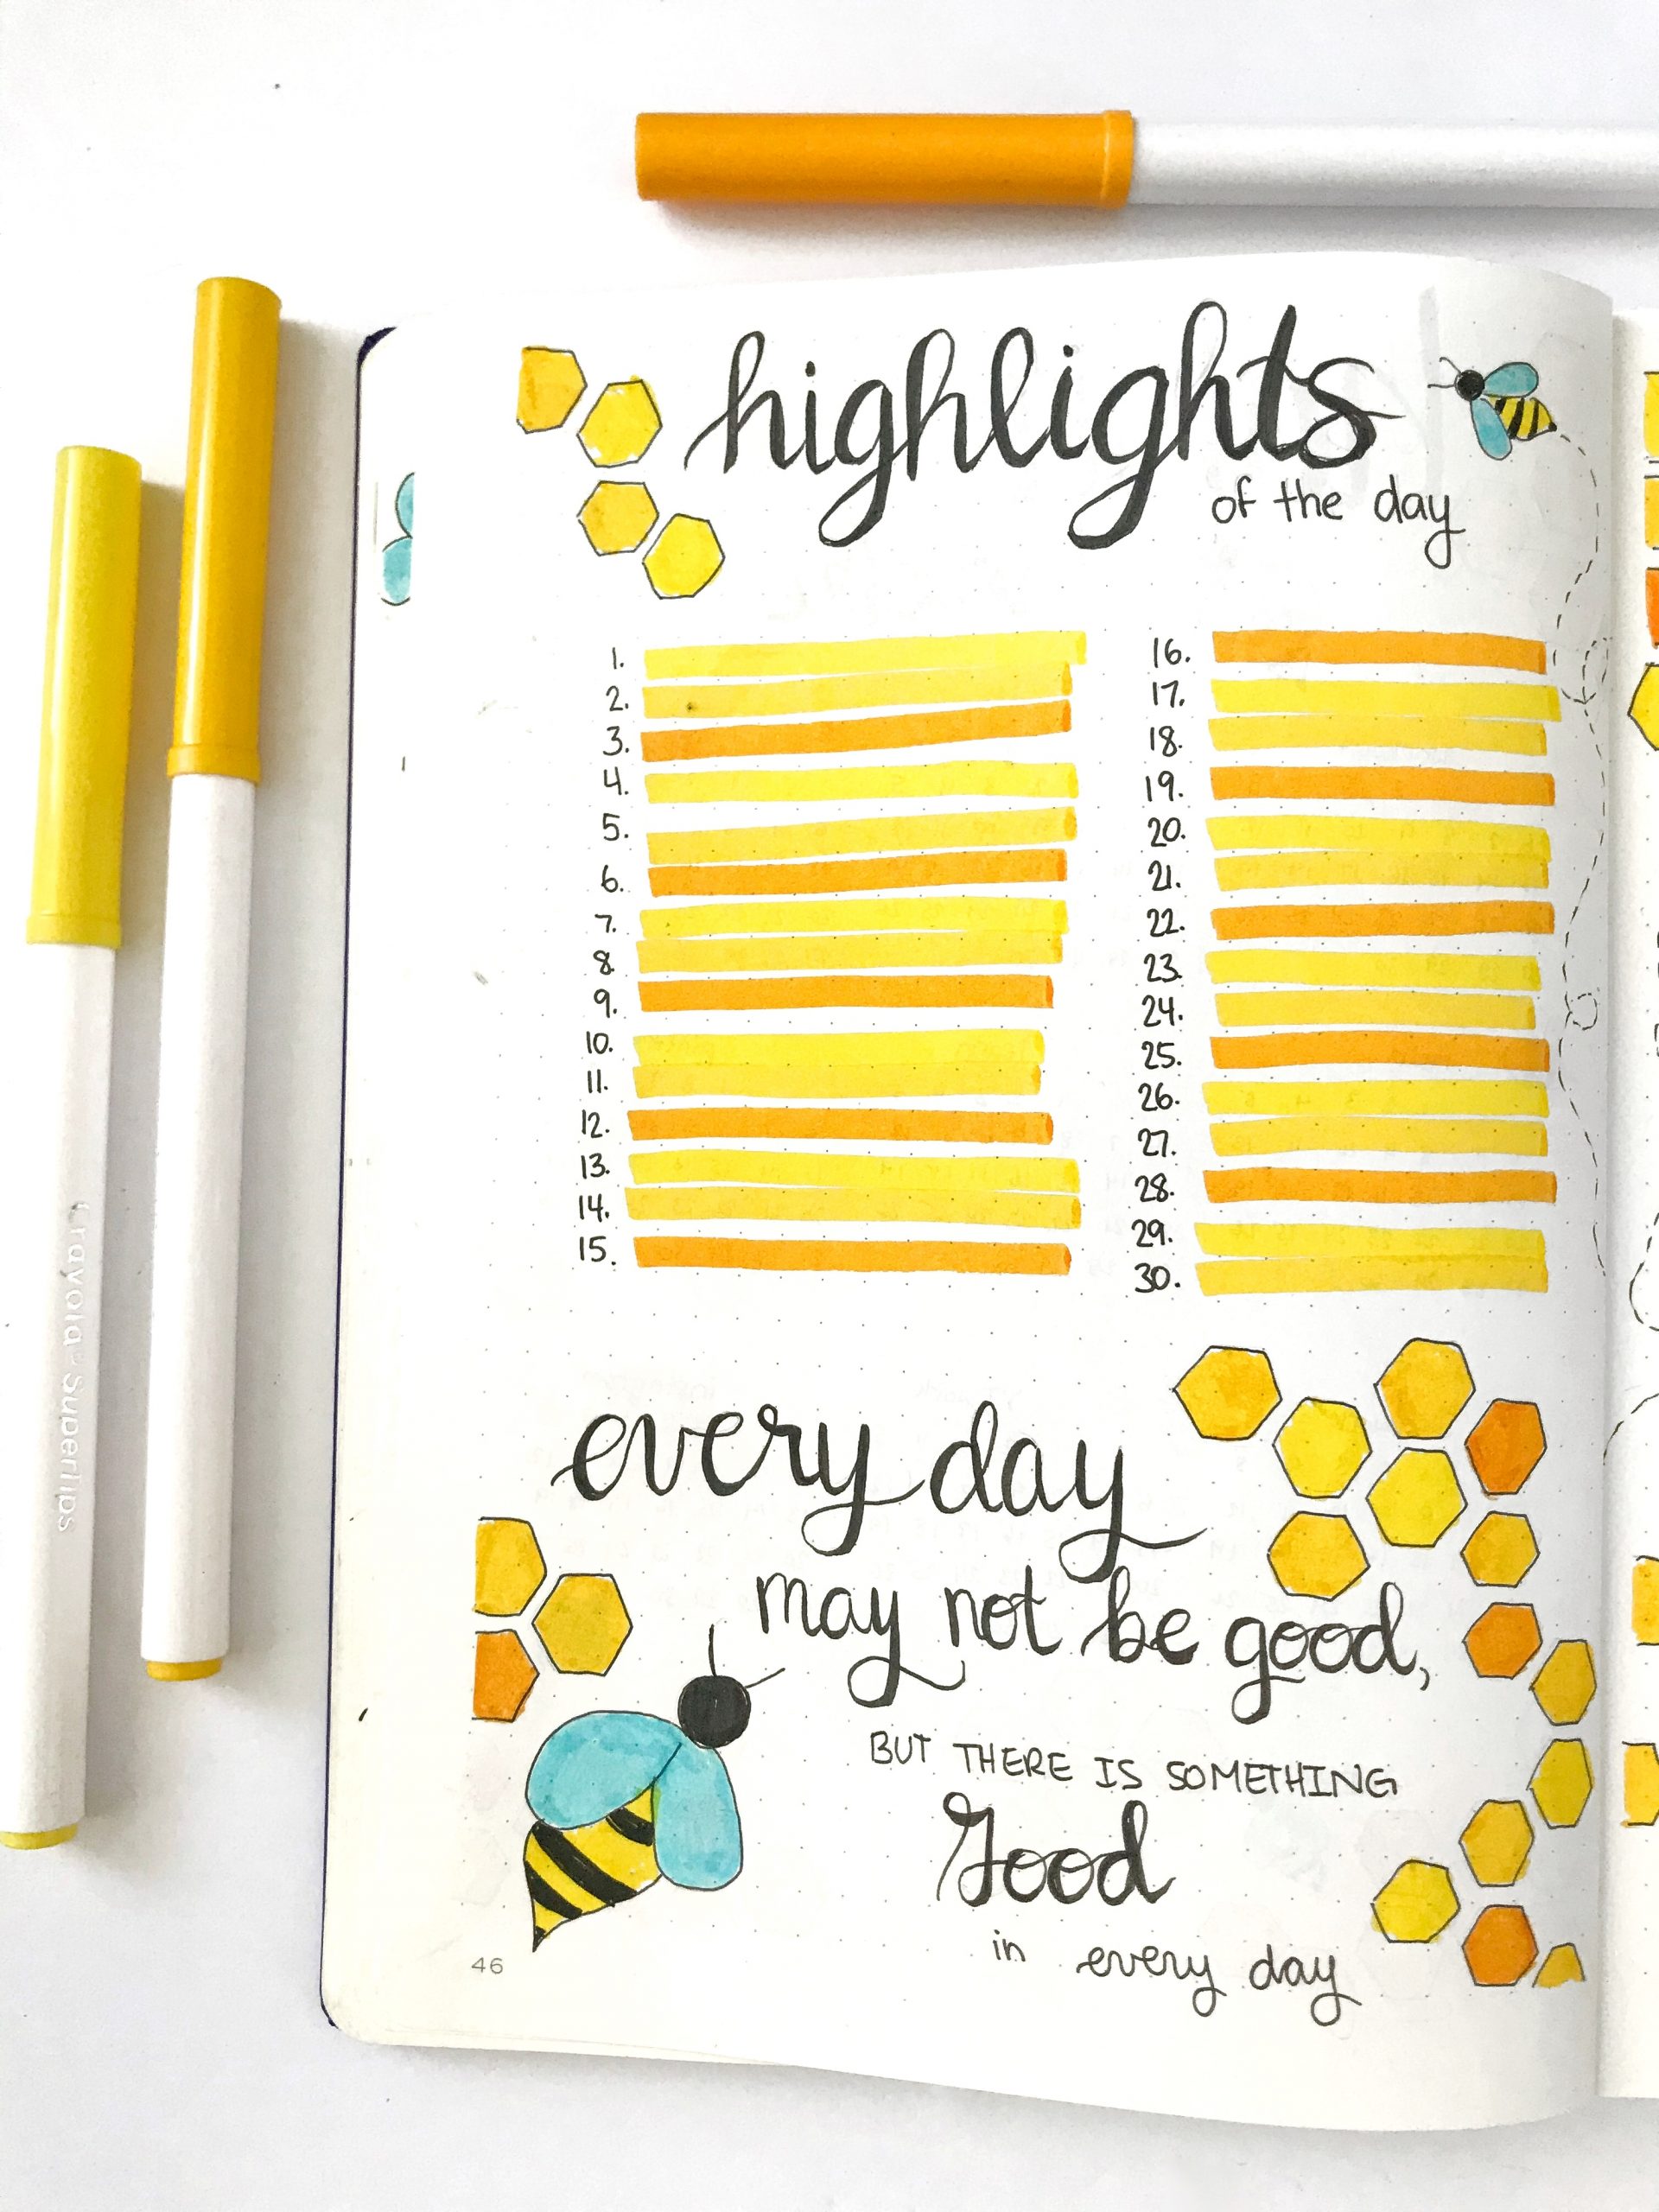 highlights
of the day
1.
2.
3.
4.
5.
6.
7.
8.
9.
10.
11.
12.
13.
14.
15.
16.
17.
18.
19.
20.
21.
22.
23.
24.
25.
26.
27.
28.
29.
30.
every day
may not be good,
BUT THERE IS SOMETHING
Good
in every day
46
Crayola Supertips